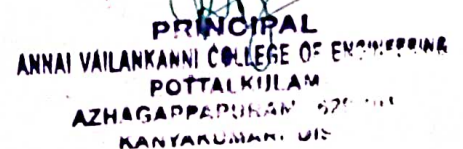 PRINCIPAL
ANNAI VAILANKANNI COLLEGE OF ENGINEERING
POTTALKULAM
AZHAGAPPAPURAM
KANYAKUMARI DIS